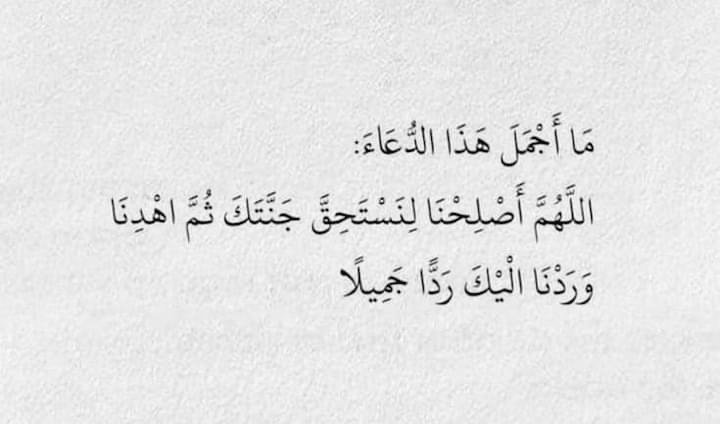 مَا أَجْمَلَ هَذَا الدُّعَاءَ:
اللَّهُمَّ أَصْلِحْنَا لِنَسْتَحِقَّ جَنَّتَكَ ثُمَّ اهْدِنَا
وَرَدْنَا الْيْكَ رَدًّا جَمِيلًا